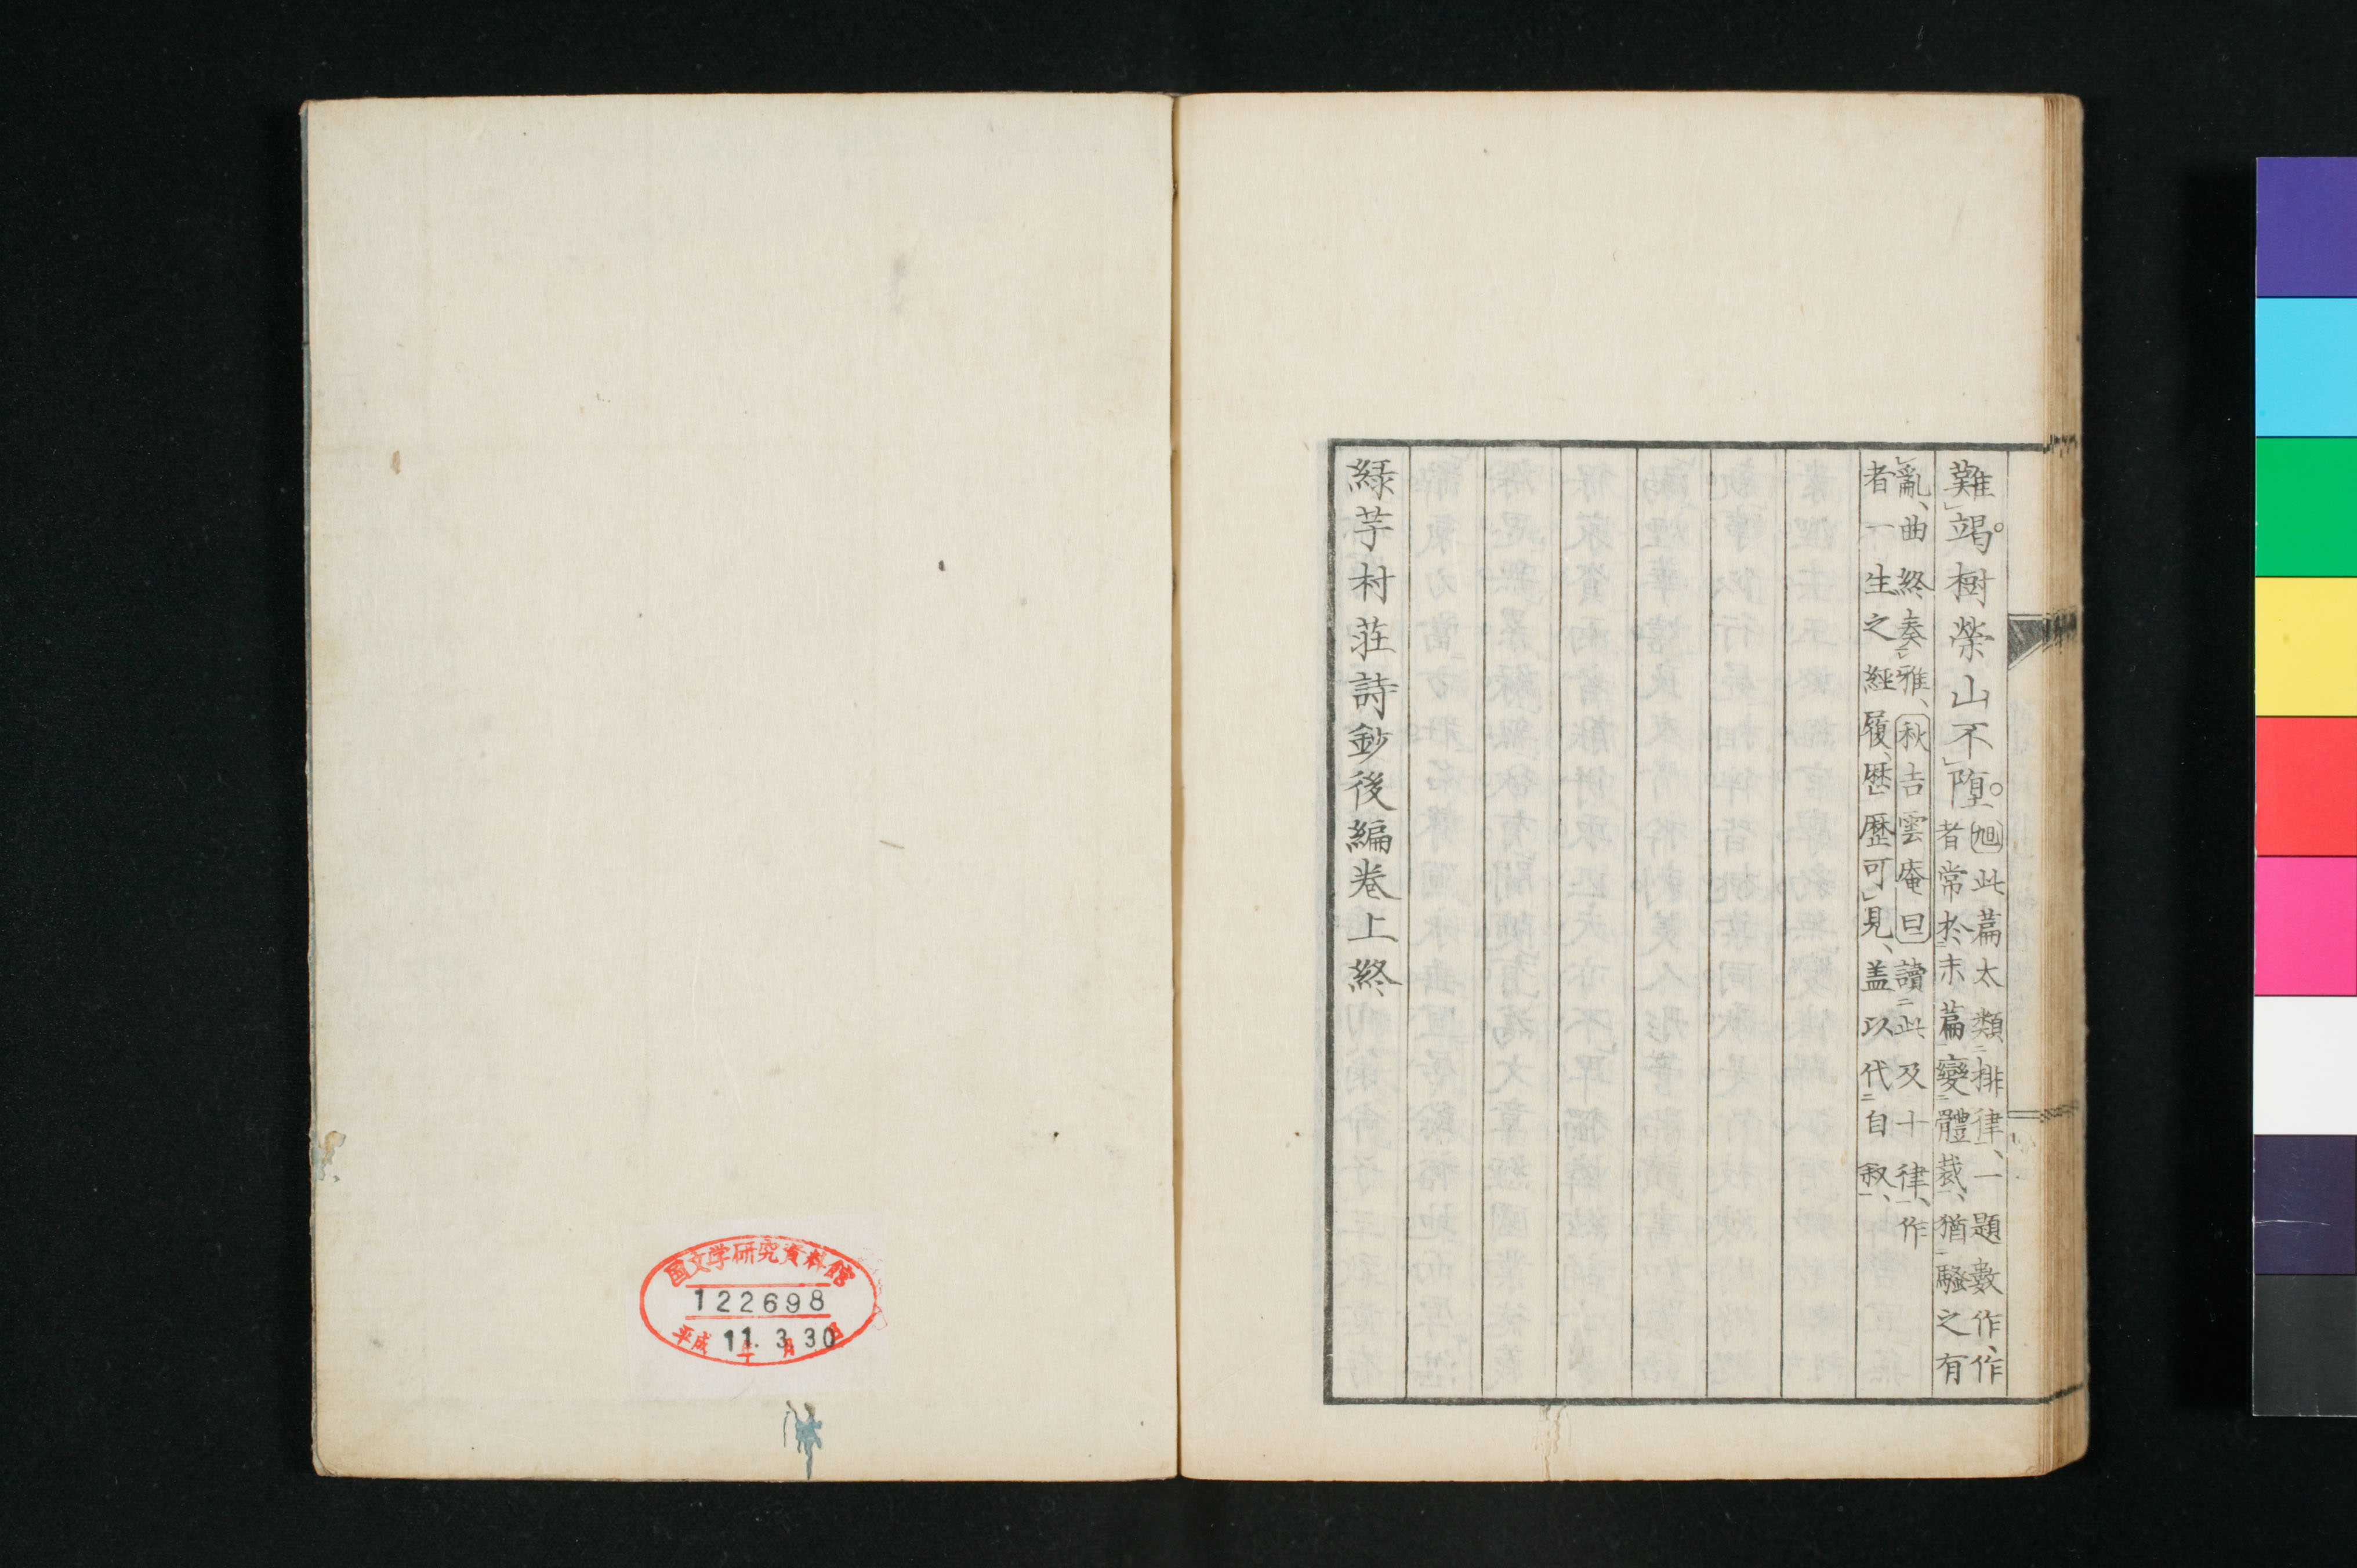 難竭。樹榮山不墮。旭此篇太類排律、一題數作、作
者常於末篇變體裁、猶騷之有
亂、曲終奏雅、秋吉雲庵曰讀此及十律、作
者一生之經履、歷歷可見、盖以代自敘、
緑芋村莊詩鈔後編卷上終
国文学研究資料館
122698
平成 11. 3. 30
年 月 日